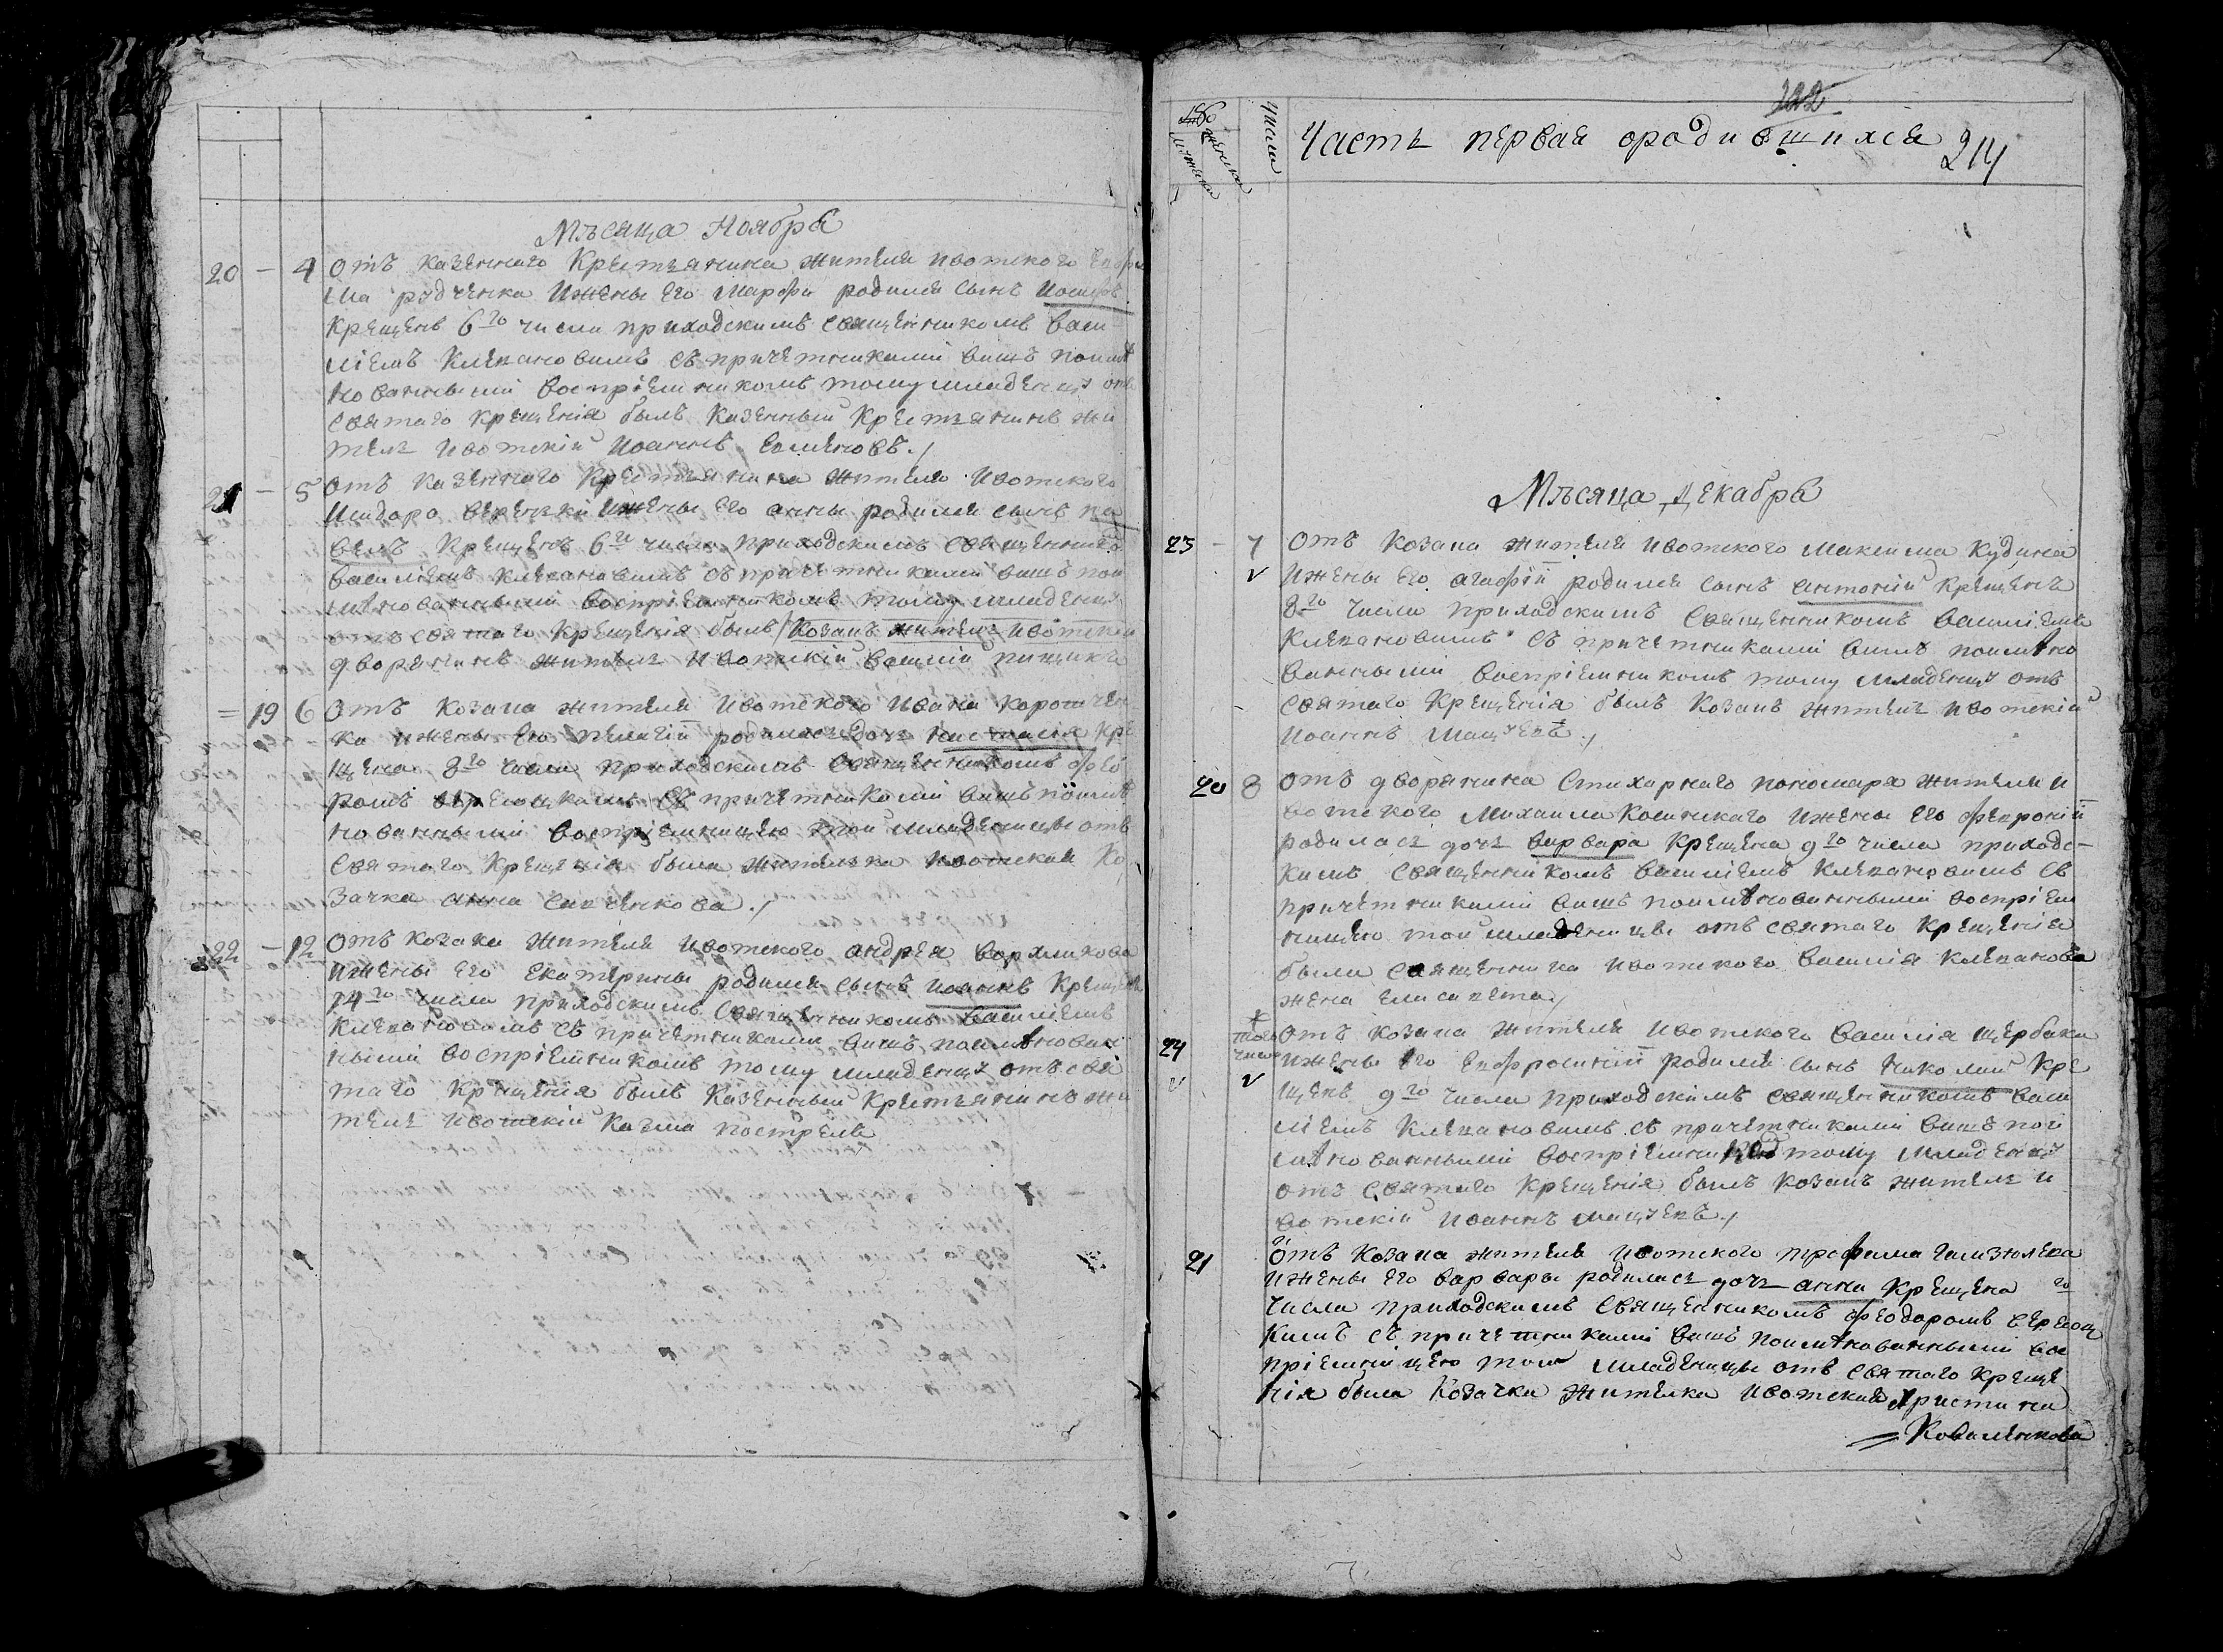 Мѣсяца Ноября
20 — 4 Отъ казеннаго Крестьянина жителя ивотского
ма рудченка ижены его Марфы родился сынъ Иосифъ
Крещенъ 6го числа приходскимъ священникомъ Васи
лiемъ Клепановимъ съ причетниками вишъ поимѣ
нованными воспрiемникомъ тому младенцу отъ
святаго крещенiя былъ казенный Крестьянинъ жи
тель ивотскiй Иоаннъ
21 — 5 Отъ казеннаго Крестьянина жителя ивотского
Исидора ижены его анны родился сынъ па
велъ Крещенъ 6го числа приходскимъ священникомъ
василiемъ клепановимъ съ причетниками вишъ пои
мѣнованными воспрiемникомъ тому младенцу
отъ святаго Крещенiя былъ Козакъ житель ивотскiй
дворянинъ житель ивотскiй василiй
— 19 6 Отъ козака жителя ивотского ивана
ка ижены его пелагiи родилась дочь настасiя Кре
щена 8го числа приходскимъ священникомъ фео
ромъ съ причетниками вишъ поимѣ
нованными воспрiемницею той младеницы отъ
святаго Крещенiя была жителька ивотская Ко
зачка анна
22 — 12 Отъ козака жителя ивотского андрея
ижены его екатерины родился сынъ иоаннъ Крещенъ
14го числа приходскимъ священникомъ василiемъ
Клепановимъ съ причетниками вишъ поимѣнован
ными воспрiемникомъ тому младенцу отъ свя
таго Крещенiя былъ Казенный Крестьянинъ жи
тель ивотскiй
числа
222
Часть первая ородившихся 214
Мѣсяца Декабря
23 — 7 Отъ козака жителя ивотского Максима Кудина
ижены его агафiи родился сынъ антонiй Крещенъ
8го числа приходскимъ священникомъ василiемъ
Клепановимъ съ причетниками вишъ поимѣно
ванными воспрiемникомъ тому младенцу отъ
святаго Крещенiя былъ Козакъ житель ивотскiй
Иоаннъ
20 8 Отъ дворянина Стихарнаго пономаря жителя и
вотского Михаила ижены его февронiи
родилась дочь варвара Крещена 9го числа приходс-
кимъ священникомъ Василiемъ Клепановимъ съ
причетниками вишъ поимѣнованными воспрiем
ницею той младенице отъ святаго Крещенiя
была священника ивотского Василiя клепанова
жена елисавета
24 того числа Отъ козака жителя ивотского Василiя щербака
ижены его евфросинiи родился сынъ николай Кре
щенъ 9го числа приходскимъ священникомъ васи
лiемъ Клепановимъ съ причетниками вишъ пои
мѣнованными тому младенцу
отъ святаго Крещенiя былъ козакъ житель и
вотскiй иоаннъ
21 Отъ козака жителя ивотского трофима
ижены его варвары родилась дочь анна Крещена го
числа приходскимъ священникомъ феодоромъ
кимъ съ причетниками вишъ поимѣнованными вос
прiемницею той младеницы отъ святаго креще
нiя была Козачка жителка ивотская христина
Коваленкова